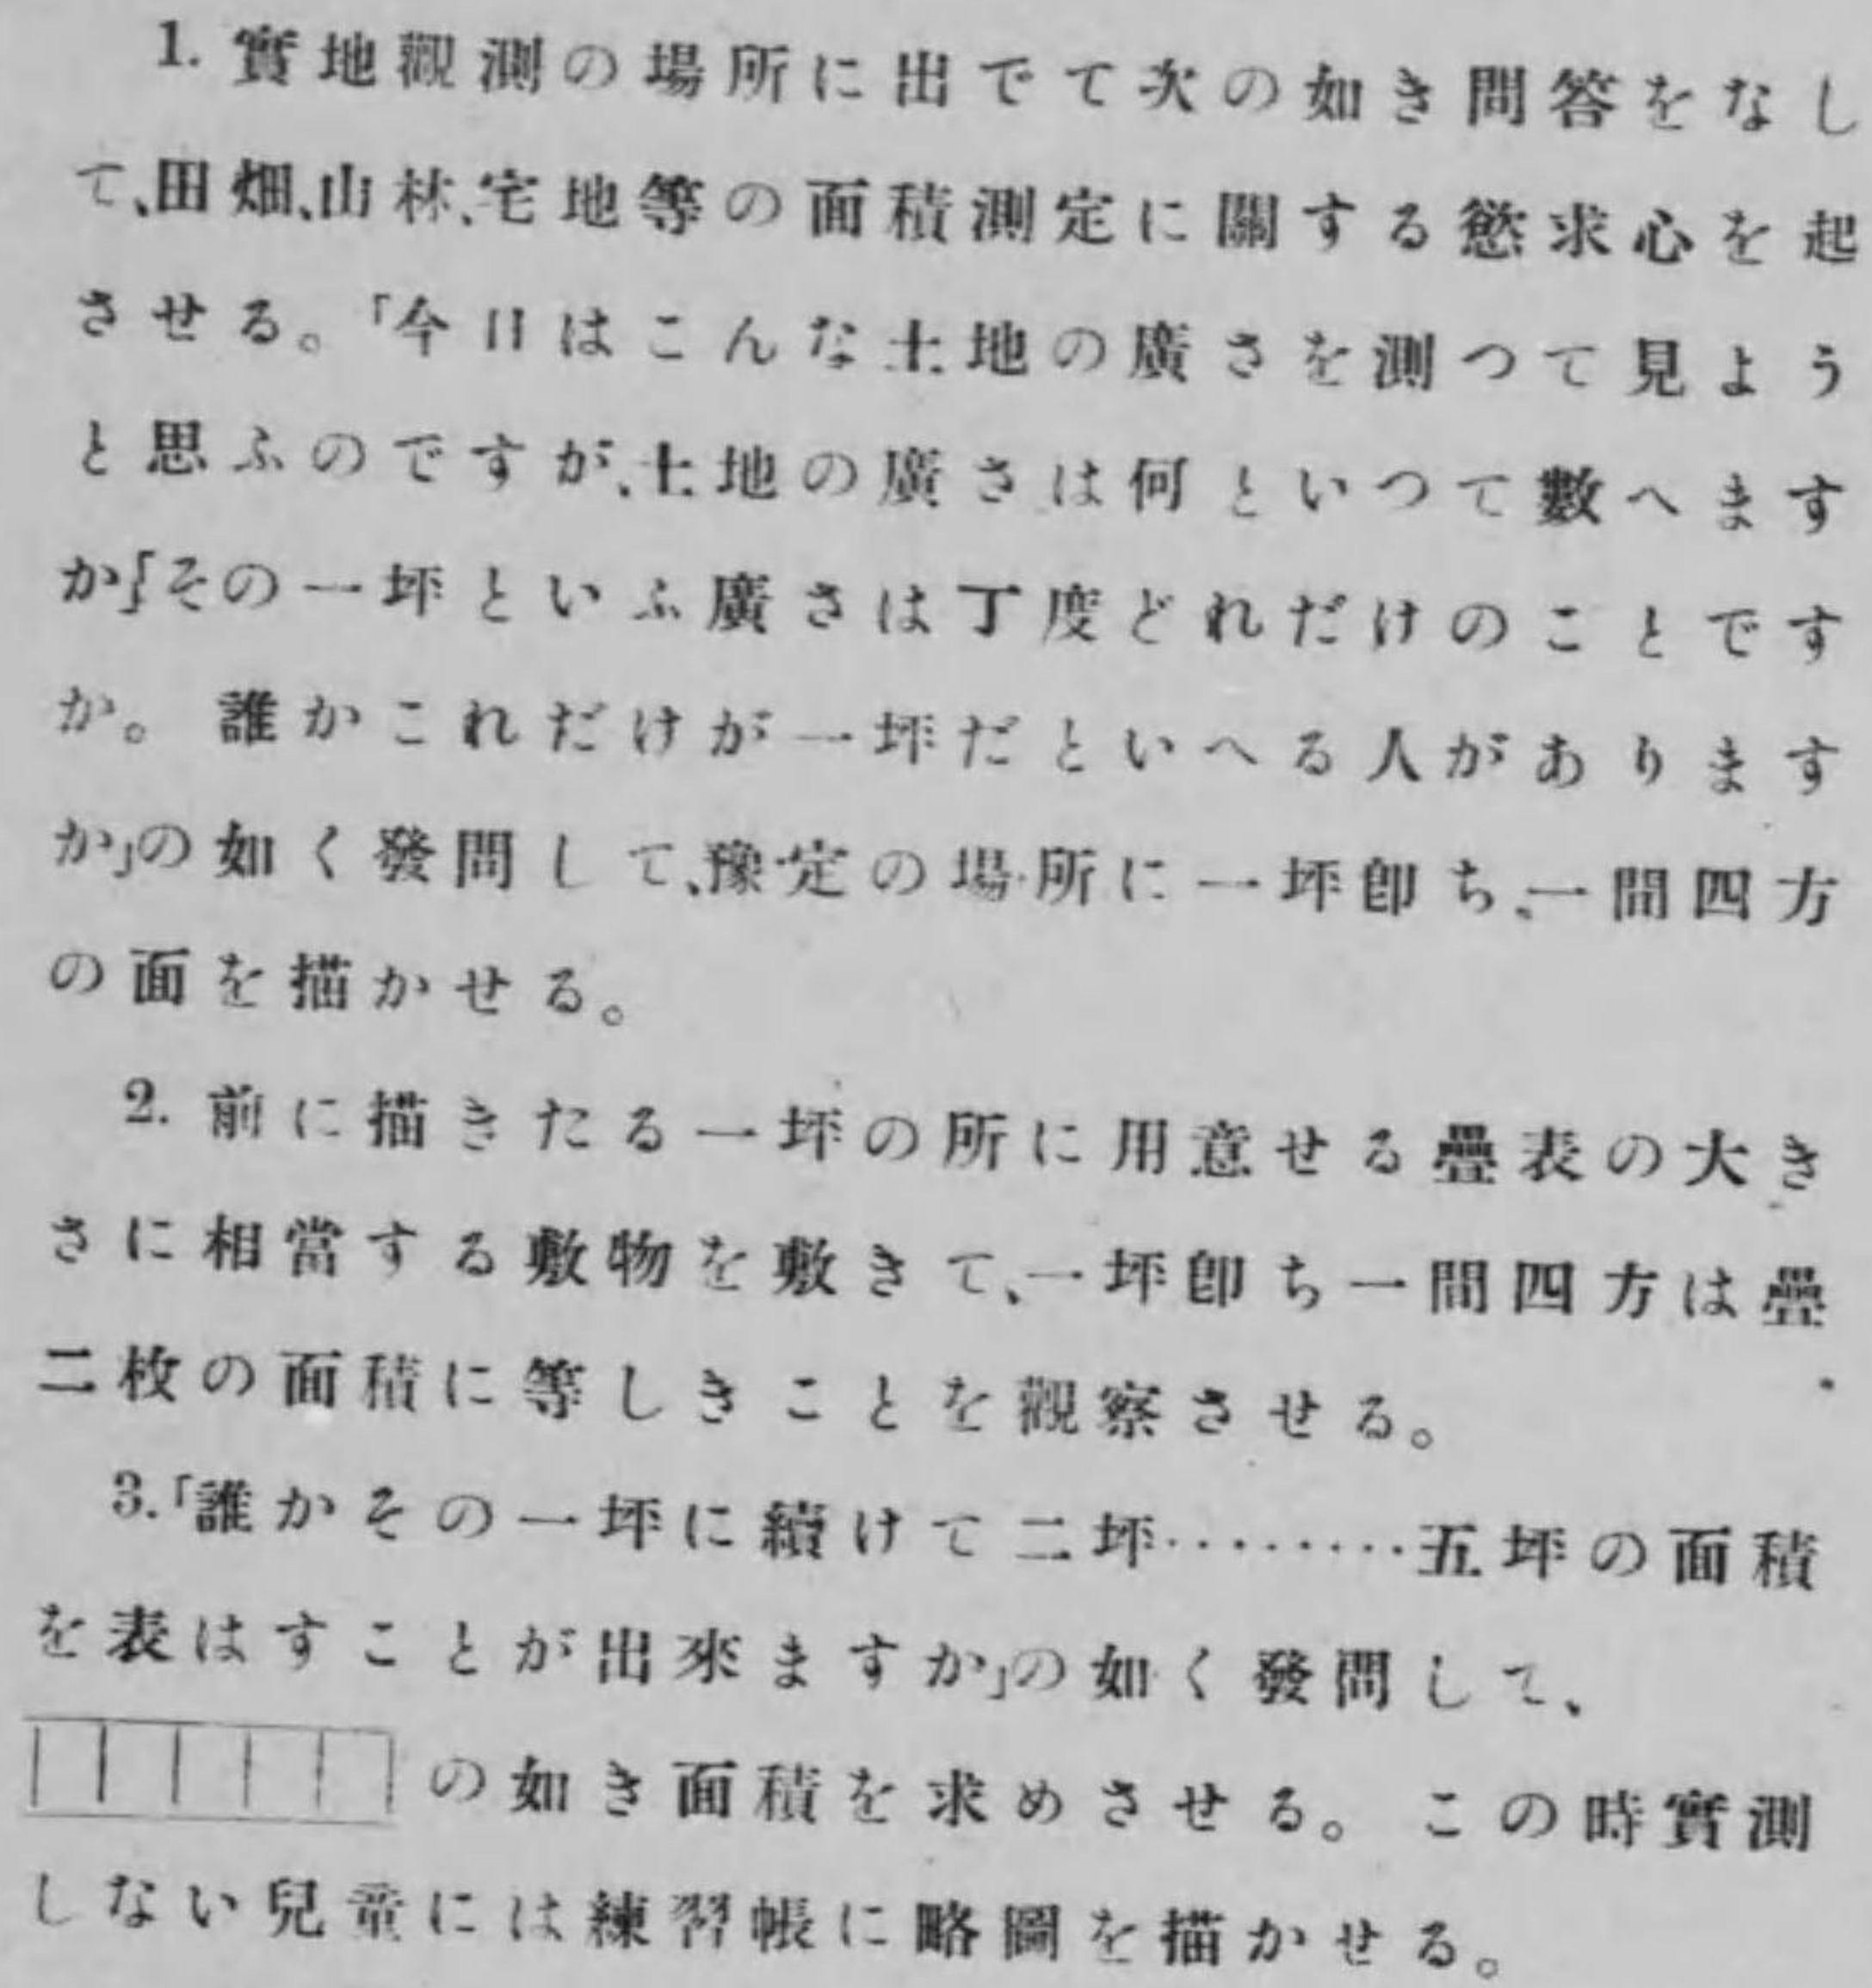 1. 實地觀測の場所に出でて次の如き問答をなし
て、田畑、山林、宅地等の面積測定に關する慾求心を起
させる。「今日はこんな土地の廣さを測つて見よう
と思ふのですが、土地の廣さは何といつて數へます
か」「その一坪といふ廣さは丁度どれだけのことです
か。誰かこれだけが一坪だといへる人があります
か」の如く發問して、豫定の場所に一坪卽ち、一間四方
の面を描かせる。
2. 前に描きたる一坪の所に用意せる疊表の大き
さに相當する敷物を敷きて、一坪卽ち一間四方は疊
二枚の面積に等しきことを觀察させる。
3.「誰かその一坪に續けて二坪………五坪の面積
を表はすことが出來ますか」の如く發問して、
の如き面積を求めさせる。この時實測
しない兒童には練習帳に略圖を描かせる。